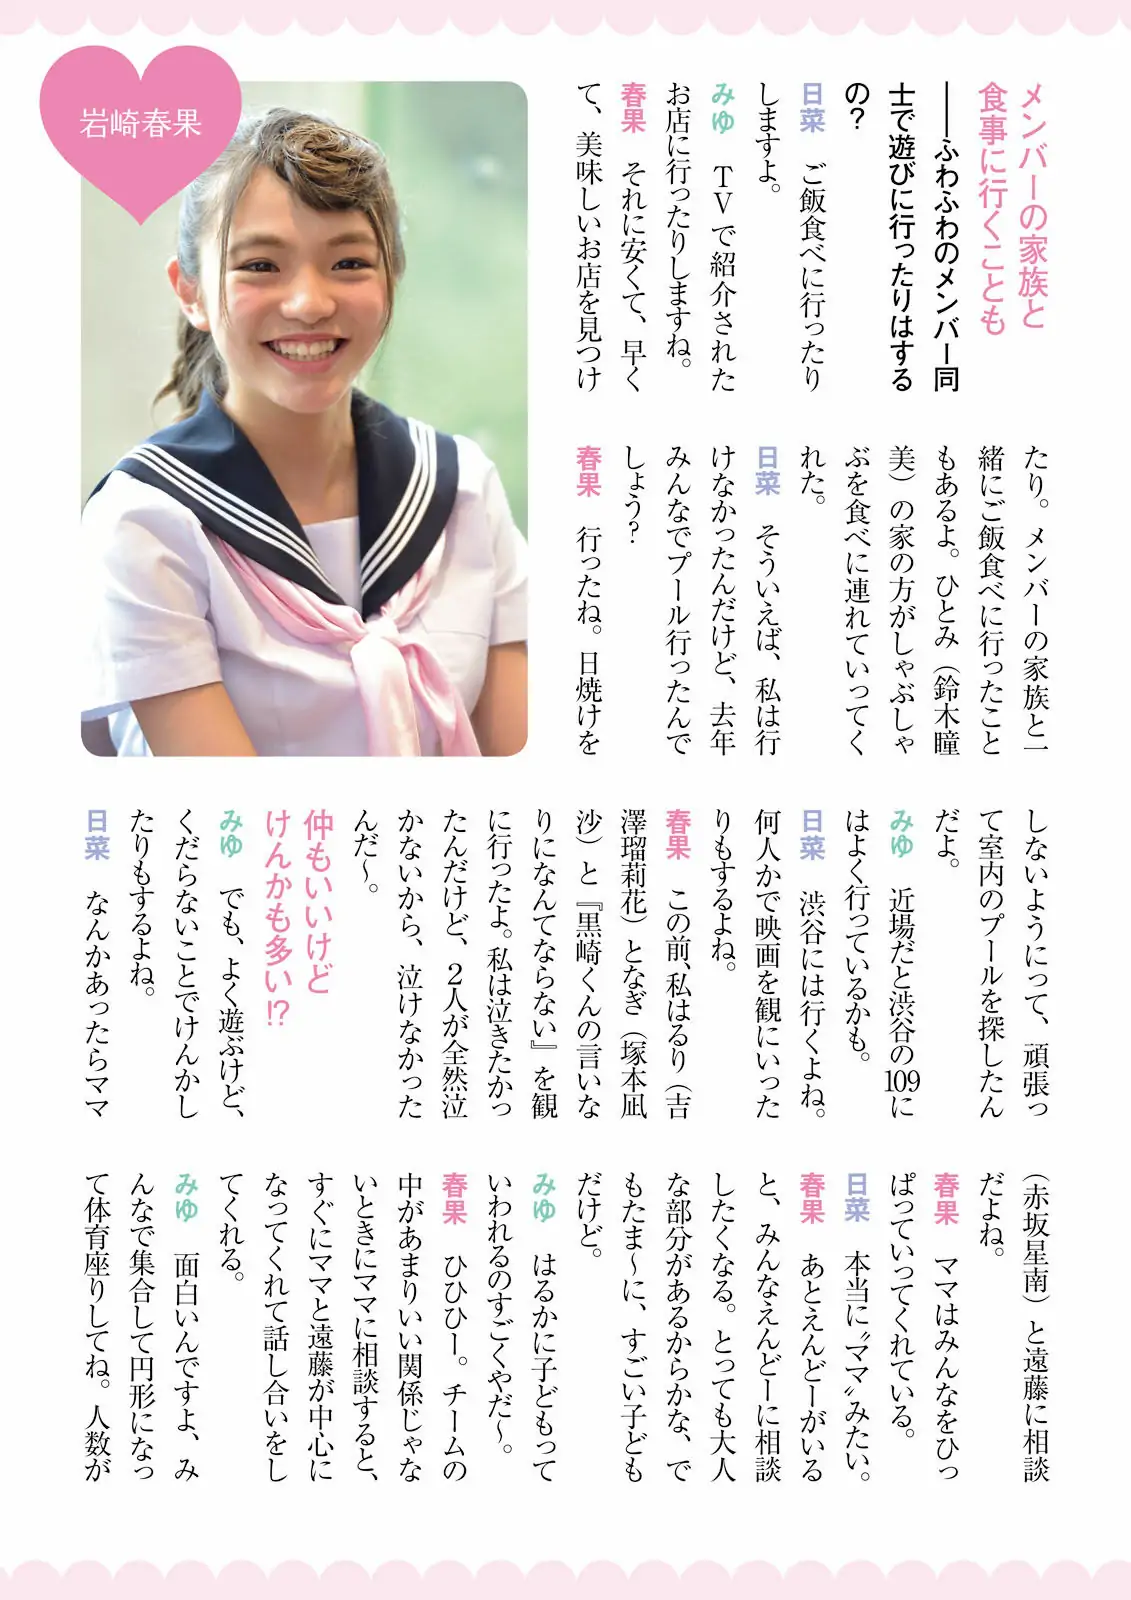 岩崎春果
メンバーの家族と
食事に行くことも
――ふわふわのメンバー同
士で遊びに行ったりはする
の？
日菜　ご飯食べに行ったり
しますよ。
みゆ　TVで紹介された
お店に行ったりしますね。
春果　それに安くて、早く
て、美味しいお店を見つけ
たり。メンバーの家族と一
緒にご飯食べに行ったこと
もあるよ。ひとみ（鈴木瞳
美）の家の方がしゃぶしゃ
ぶを食べに連れていってく
れた。
日菜　そういえば、私は行
けなかったんだけど、去年
みんなでプール行ったんで
しょう？
春果　行ったね。日焼けを
しないようにって、頑張っ
て室内のプールを探したん
だよ。
みゆ　近場だと渋谷の109に
はよく行っているかも。
日菜　渋谷には行くよね。
何人かで映画を観にいった
りもするよね。
春果　この前、私はるり（吉
澤瑠莉花）となぎ（塚本凪
沙）と『黒崎くんの言いな
りになんてならない』を観
に行ったよ。私は泣きたかっ
たんだけど、2人が全然泣
かないから、泣けなかった
んだ～。
仲もいいけど
けんかも多い!?
みゆ　でも、よく遊ぶけど、
くだらないことでけんかし
たりもするよね。
日菜　なんかあったらママ
（赤坂星南）と遠藤に相談
だよね。
春果　ママはみんなをひっ
ぱっていってくれている。
日菜　本当に〝ママ〟みたい。
春果　あとえんどーがいる
と、みんなえんどーに相談
したくなる。とっても大人
な部分があるからかな、で
もたま～に、すごい子ども
だけど。
みゆ　はるかに子どもって
いわれるのすごくやだ～。
春果　ひひひー。チームの
中があまりいい関係じゃな
いときにママに相談すると、
すぐにママと遠藤が中心に
なってくれて話し合いをし
てくれる。
みゆ　面白いんですよ、み
んなで集合して円形になっ
て体育座りしてね。人数が